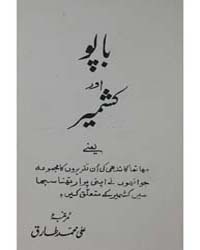 باپو
اور
کشمیر
یعنے
مہاتما گاندھی کی اُن تقریروں کا مجموعہ
جو انہوں نے اپنی پرارتھنا سبھا
میں کشمیر کے متعلق کیں۔
مرتبہ
علی محمد طارق